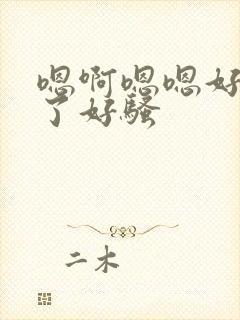 嗯啊嗯嗯好
了好骚
二木